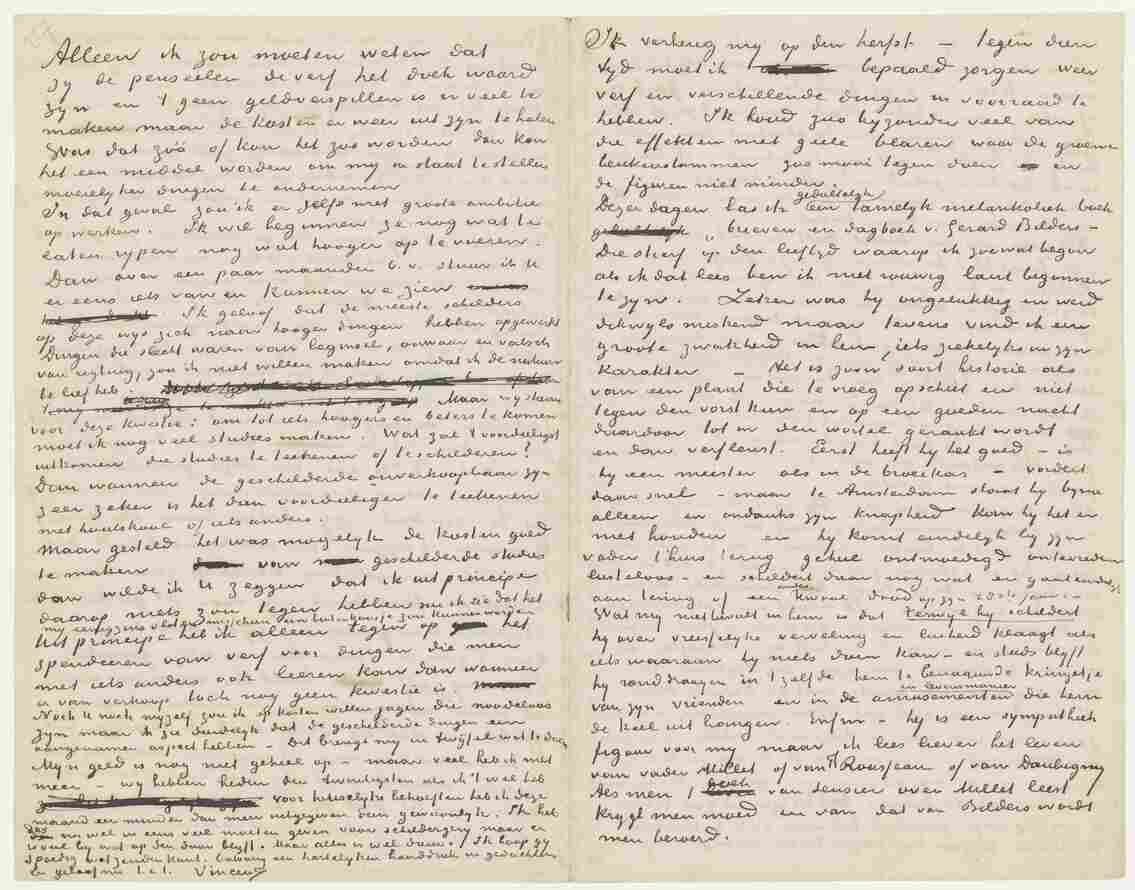 Alleen ik zou moeten weten dat
zy de penseelen de verf het doek waard
zyn en 't geen geldverspillen is er veel te
maken maar de kosten er weer uit zyn te halen
Was dat zoó of kon het zoo worden dan kon
het een middel worden om my in staat te stellen
moeielyker dingen te ondernemen
In dat geval zou ik er zelfs met groote ambitie
op werken. Ik wil beginnen ze nog wat te
laten rypen nog wat hooger op te voeren.
Dan over een paar maanden b.v. stuur ik U
er eens iets van en kunnen we zien
Ik geloof dat de meeste schilders
op deze wys zich naar hooger dingen hebben opgewerkt
Dingen die slecht waren van beginsel, onwaar en valsch
van rigting, zou ik niet willen maken omdat ik de natuur
te lief heb.
Maar wy staan
voor deze kwestie: om tot iets hoogers en beters te komen
moet ik nog veel studies maken. Wat zal 't voordeeligst
uitkomen die studies te teekenen of te schilderen?
Dan wanneer de geschilderde onverkoopbaar zyn
zeer zeker is het dan voordeeliger te teekenen
met houtskool of iets anders.
Maar gesteld het was mogelyk de kosten goed
te maken van geschilderde studies
dan wilde ik U zeggen dat ik uit principe
daarop niets zou tegen hebben nu ik zie dat het
my eenigzins vlot en misschien een buitenkansje zou kunnen worden
Uit principe heb ik alleen tegen op het
spendeeren van verf voor dingen die men
met iets anders ook leeren kan dan wanneer
er van verkoop toch nog geen kwestie is
Noch U noch myself zou ik op kosten willen jagen die noodeloos
zyn maar ik zie duidelyk dat de geschilderde dingen een
aangenamer aspect hebben – Dat brengt my in twyfel wat te doen
Myn geld is nog niet geheel op – maar veel heb ik niet
meer – wy hebben heden den twintigsten als ik 't wel heb
voor huisselyke behoeften heb ik deze
maand eer minder dan meer uitgegeven dan gewoonlyk. Ik heb
nu wel in eens veel moeten geven voor schildergerij maar er
is veel by wat op den duur blyft. Maar alles is wel duur. Ik hoop gy
spoedig wat zenden kunt. Ontvang een hartelyken handdruk in gedachten
en geloof me t.à t. Vincent
Ik verheug my op den herfst – tegen dien
tyd moet ik bepaald zorgen weer
verf en verschillende dingen in voorraad te
hebben. Ik houd zoo byzonder veel van
die effekten met geele blaren waar de groene
beukenstammen zoo mooi tegen doen en
de figuren niet minder.
gedeeltelyk
Dezer dagen las ik een tamelyk melankoliek boek
„brieven en dagboek v. Gerard Bilders –
Die stierf op den leeftyd waarop ik zoowat begon
als ik dat lees ben ik niet rouwig laat begonnen
te zyn. Zeker was hy ongelukkig en werd
dikwyls miskend maar tevens vind ik een
groote zwakheid in hem, iets ziekelyks in zyn
karakter – Het is zoo'n soort historie als
van een plant die te vroeg opschiet en niet
tegen den vorst kan en op een goeden nacht
daardoor tot in den wortel geraakt wordt
en dan verflenst. Eerst heeft hy het goed – is
hy een meester als in de broeikas – vordert
daar snel – maar te Amsterdam staat hy byna
alleen en ondanks zyn knapheid kan hy het er
niet houden en hy komt eindelyk by zyn
vader t'huis terug geheel ontmoedigd ontevreden
lusteloos – en schildert daar nog wat en gaat eindelyk
aan tering of een andere kwaal dood op zyn 28ste jaar. –
Wat my niet bevalt in hem is dat terwyl hy schildert
hy over vreesselyke verveling en luiheid klaagt als
iets waaraan hy niets doen kan – en steeds blyft
hy ronddraaijen in 't zelfde hem te benaauwde kringetje
van zyn vrienden en in de amusementen en levensmanier die hem
de keel uit hangen. Enfin – hy is een sympathiek
figuur voor my maar ik lees liever het leven
van vader Millet of van T Rousseau of van Daubigny
Als men 't boek van Sensier over Millet leest
krygt men moed en van dat van Bilders wordt
men beroerd.